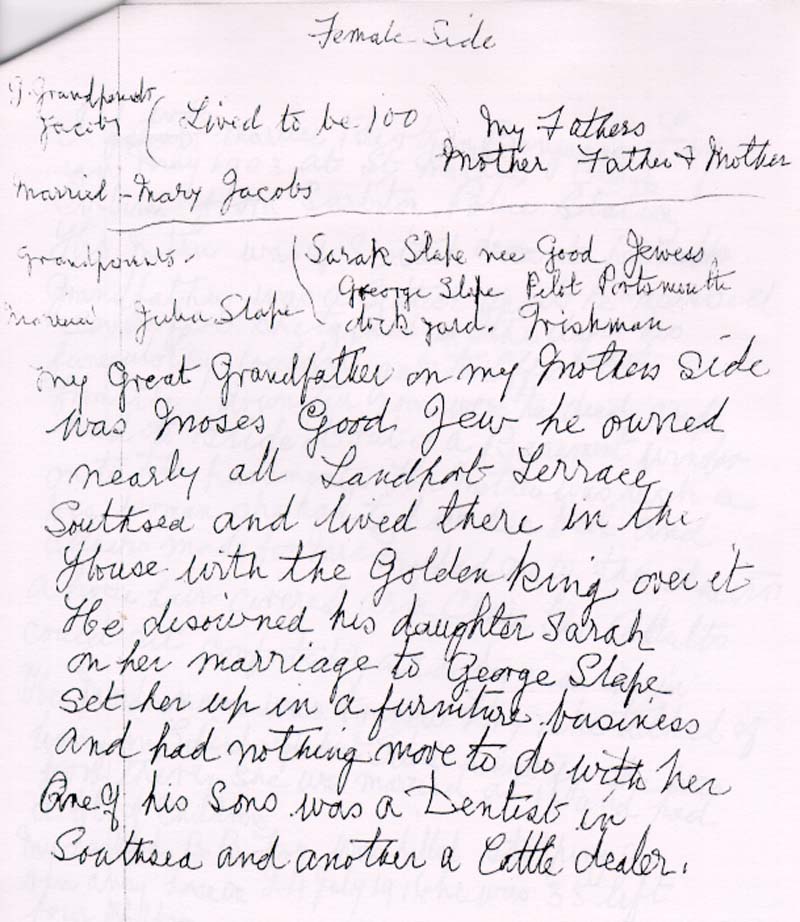 Female Side
G. Grandparents
Jacobs ( Lived to be 100
My Fathers
Mother Father & Mother
Married :- Mary Jacobs
Grandparents -
Sarah Slape nee Good Jewess
George Slape Pilot Portsmouth
Married Julia Slape
dock yard. Irishman
my Great Grandfather on my Mothers Side
was Moses Good Jew he owned
nearly all Landport Terrace
Southsea and lived there in the
House with the Golden King over it
He disowned his daughter Sarah
on her marriage to George Slape
set her up in a furniture business
and had nothing more to do with her
One of his Sons was a Dentist in
Southsea and another a Cattle dealer.